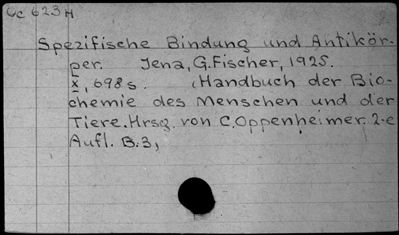 Cc 623 H
Spezifische Bindung und Antikör-
per. Jena, G. Fischer, 1925.
X, 698 s. (Handbuch der Bio-
chemie des Menschen und der
Tiere. Hrsg. von C. Oppenheimer. 2-e
Aufl. B. 3,